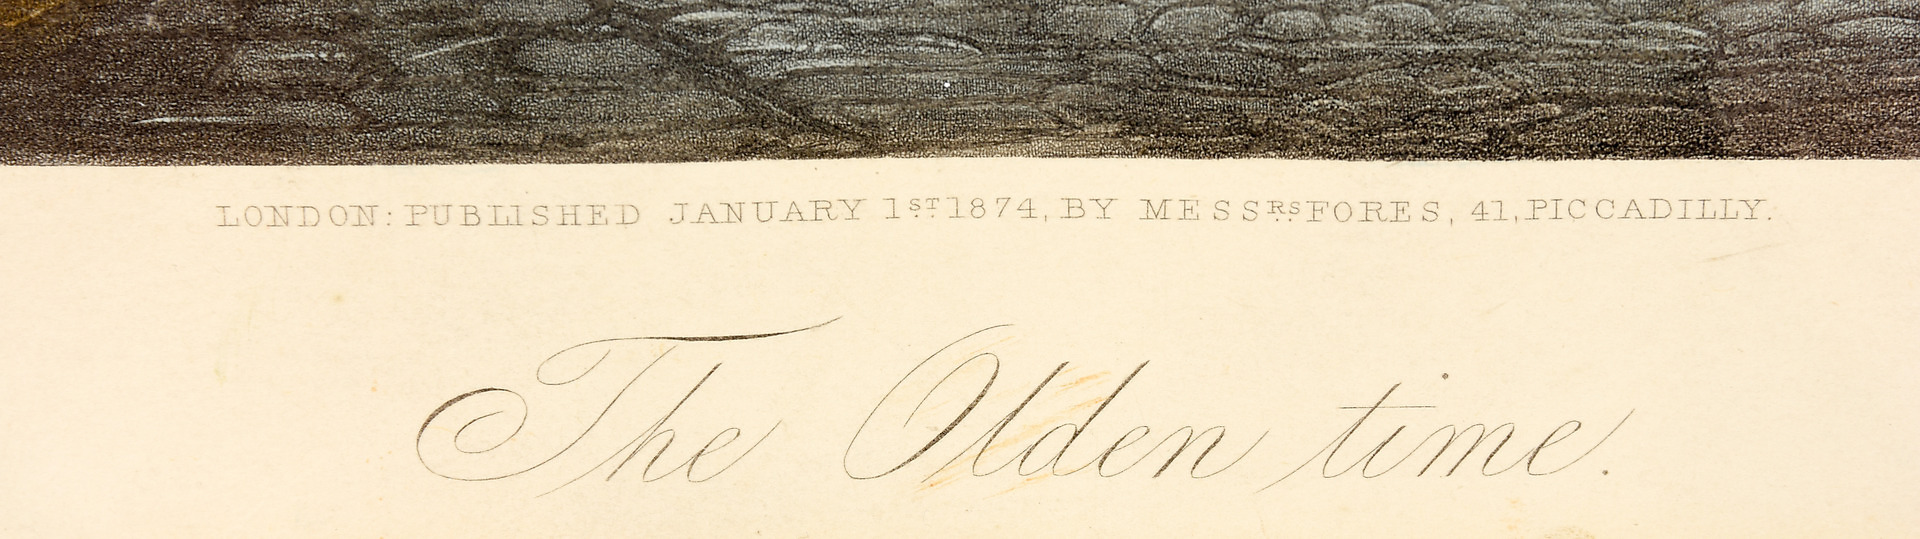 LONDON: PUBLISHED JANUARY 1ST 1874, BY MESSRS FORES, 41, PICCADILLY.
The Olden time.